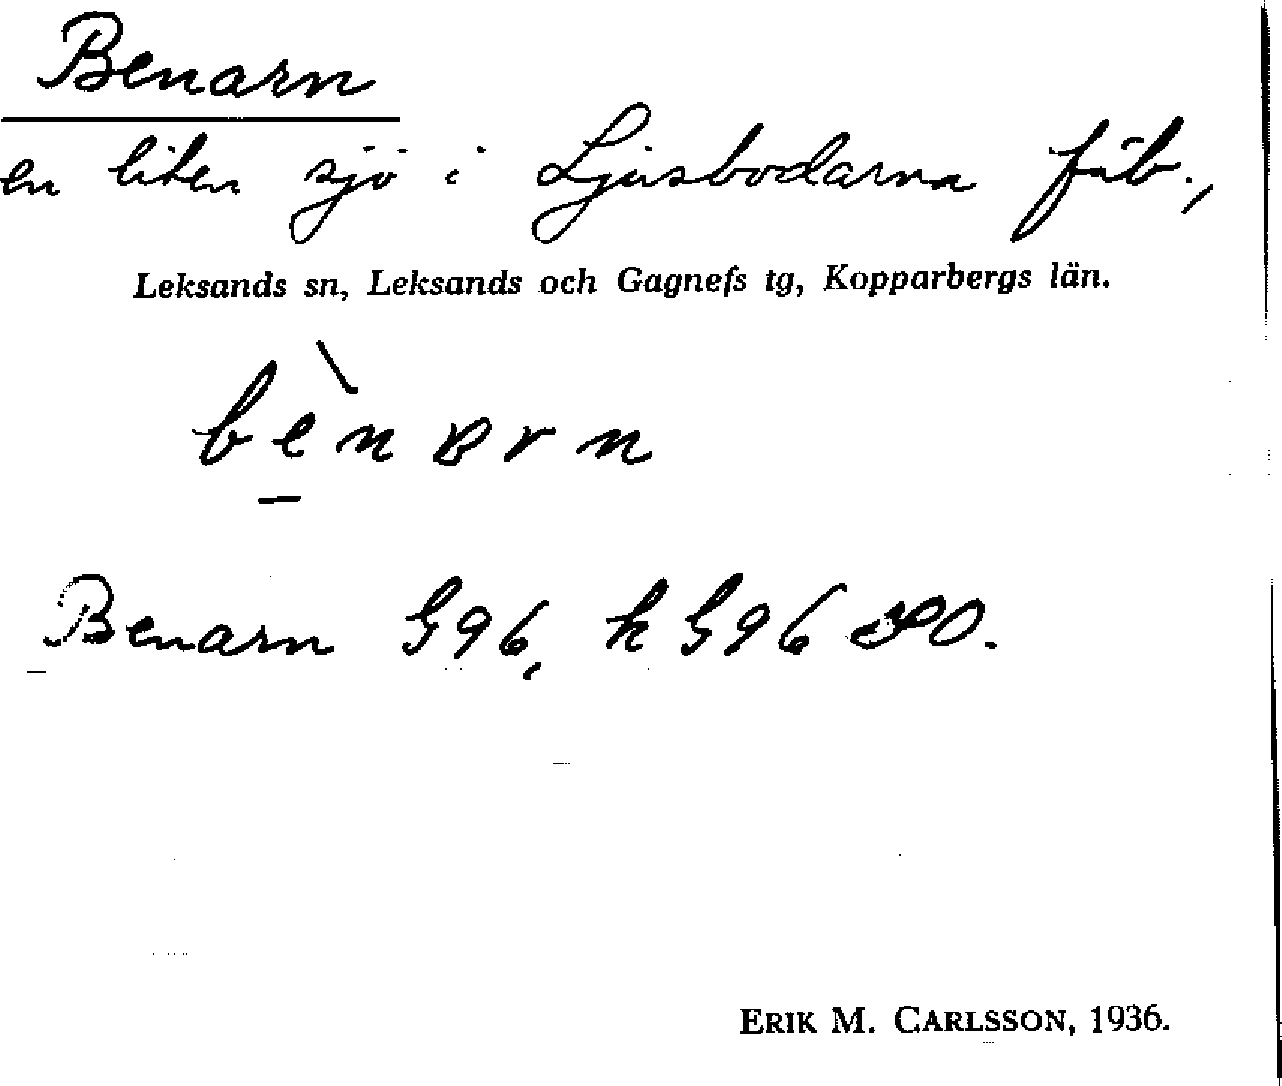 Benarn
en liten sjö i Ljusbodarna fäb.,
Leksands sn, Leksands och Gagnefs tg, Kopparbergs län.
bènɒrn
Benarn G96, k G96 SO.
ERIK M. CARLSSON, 1936.